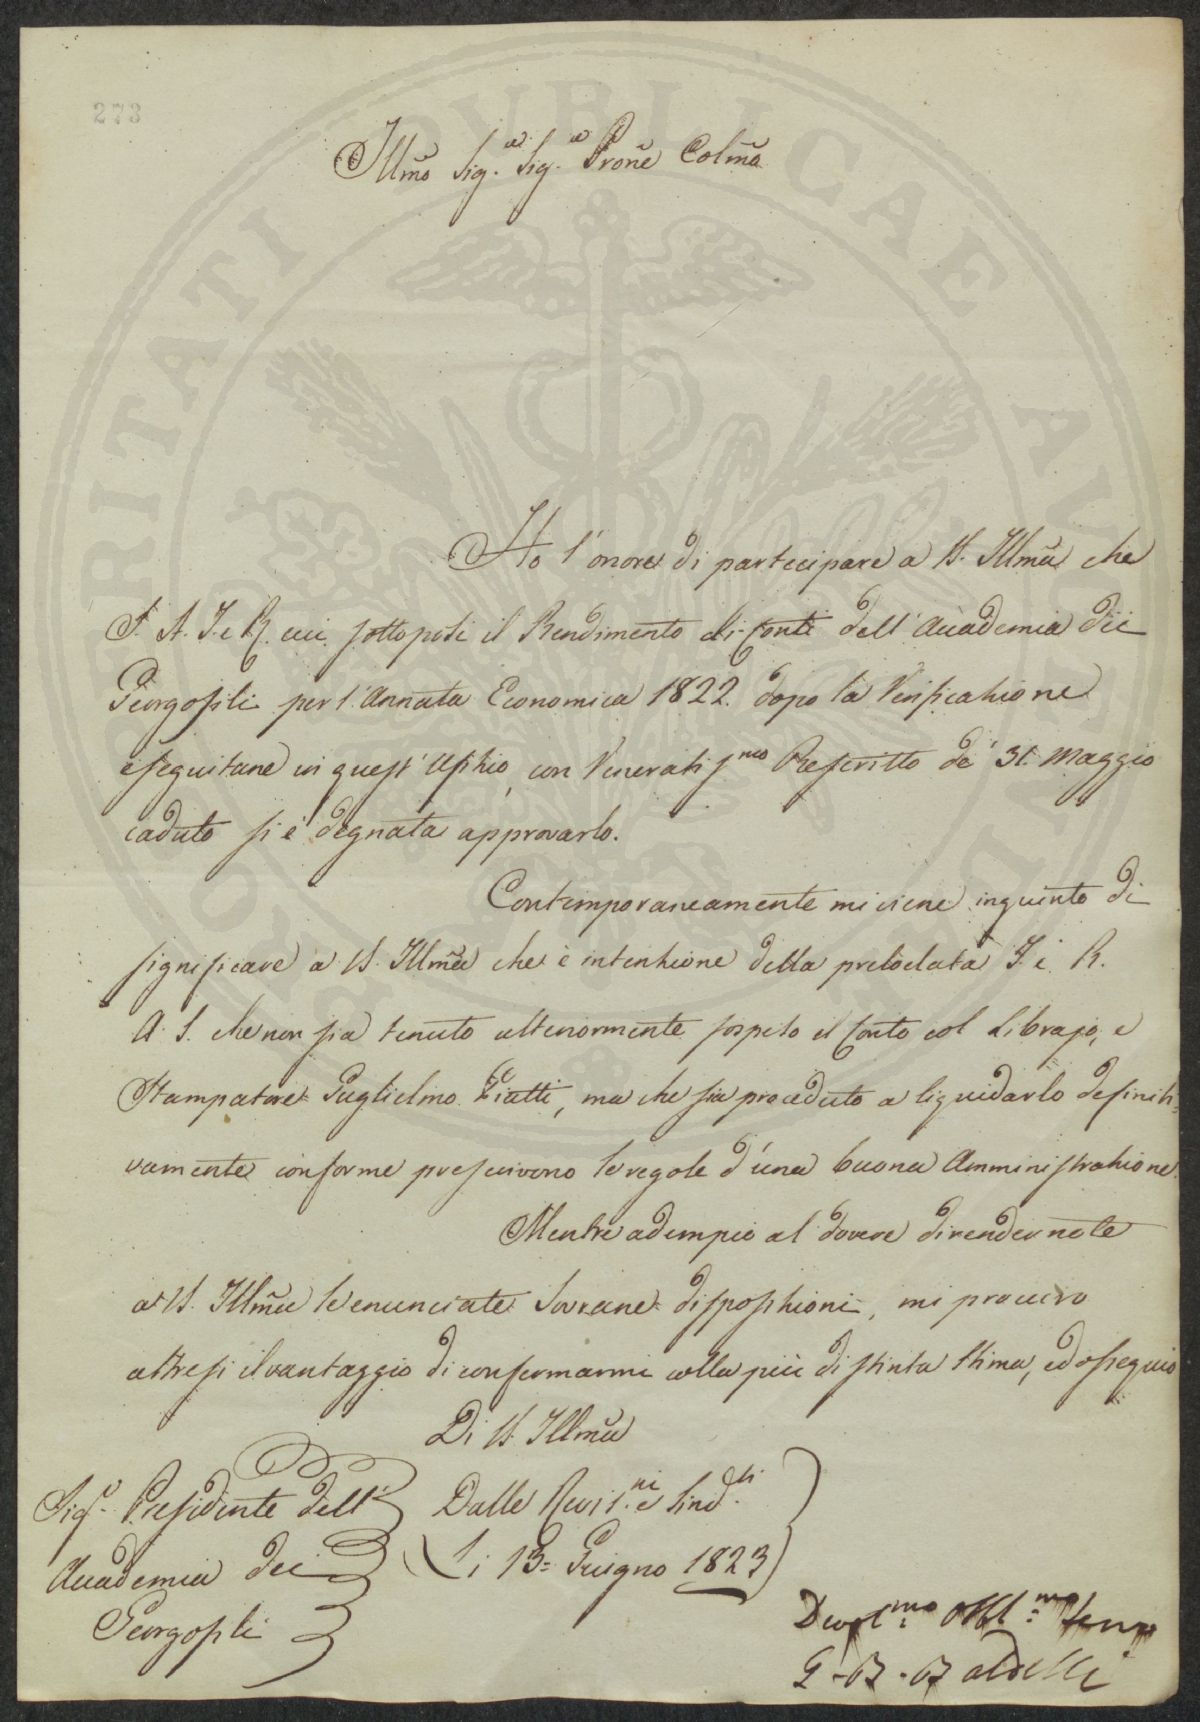 273
Illmo Sig.e Sig.e Prone Colmo
Ho l'onore di partecipare a VS. Illma che
S. A. I. e R. cui sottoposi il Rendimento di Conti dell'Accademia dei
Georgofili per l'Annata Economica 1822. dopo la Verificazione
eseguitane in quest'Ufizio, con Veneratissmo Rescritto de' 31. Maggio
caduto si è degnata approvarlo.
Contemporaneamente mi viene ingiunto di
significare a VS. Illma che è intenzione della prelodata I. e R.
A. S. che non sia tenuto ulteriormente sospeso il Conto col Librajo, e
Stampatore Guglielmo Piatti, ma che sia proceduto a liquidarlo definiti=
vamente conforme prescrivono le regole d'una buona Amministrazione.
Mentre adempio al dovere di render note
a VS. Illma le enunciate Sovrane disposizioni, mi procuro
altresi il vantaggio di confermarmi colla più distinta stima, ed ossequio
Di VS. Illma
Sigr. Presidente dell'
Accademia dei
Georgofili
Dalle Revis.ni e Sind.ti
Li 13= Giugno 1823
Devotmo Obblmo Serve
G. B. Baldelli
PUBLICAE
PROSPERITATI
AUGENDAE